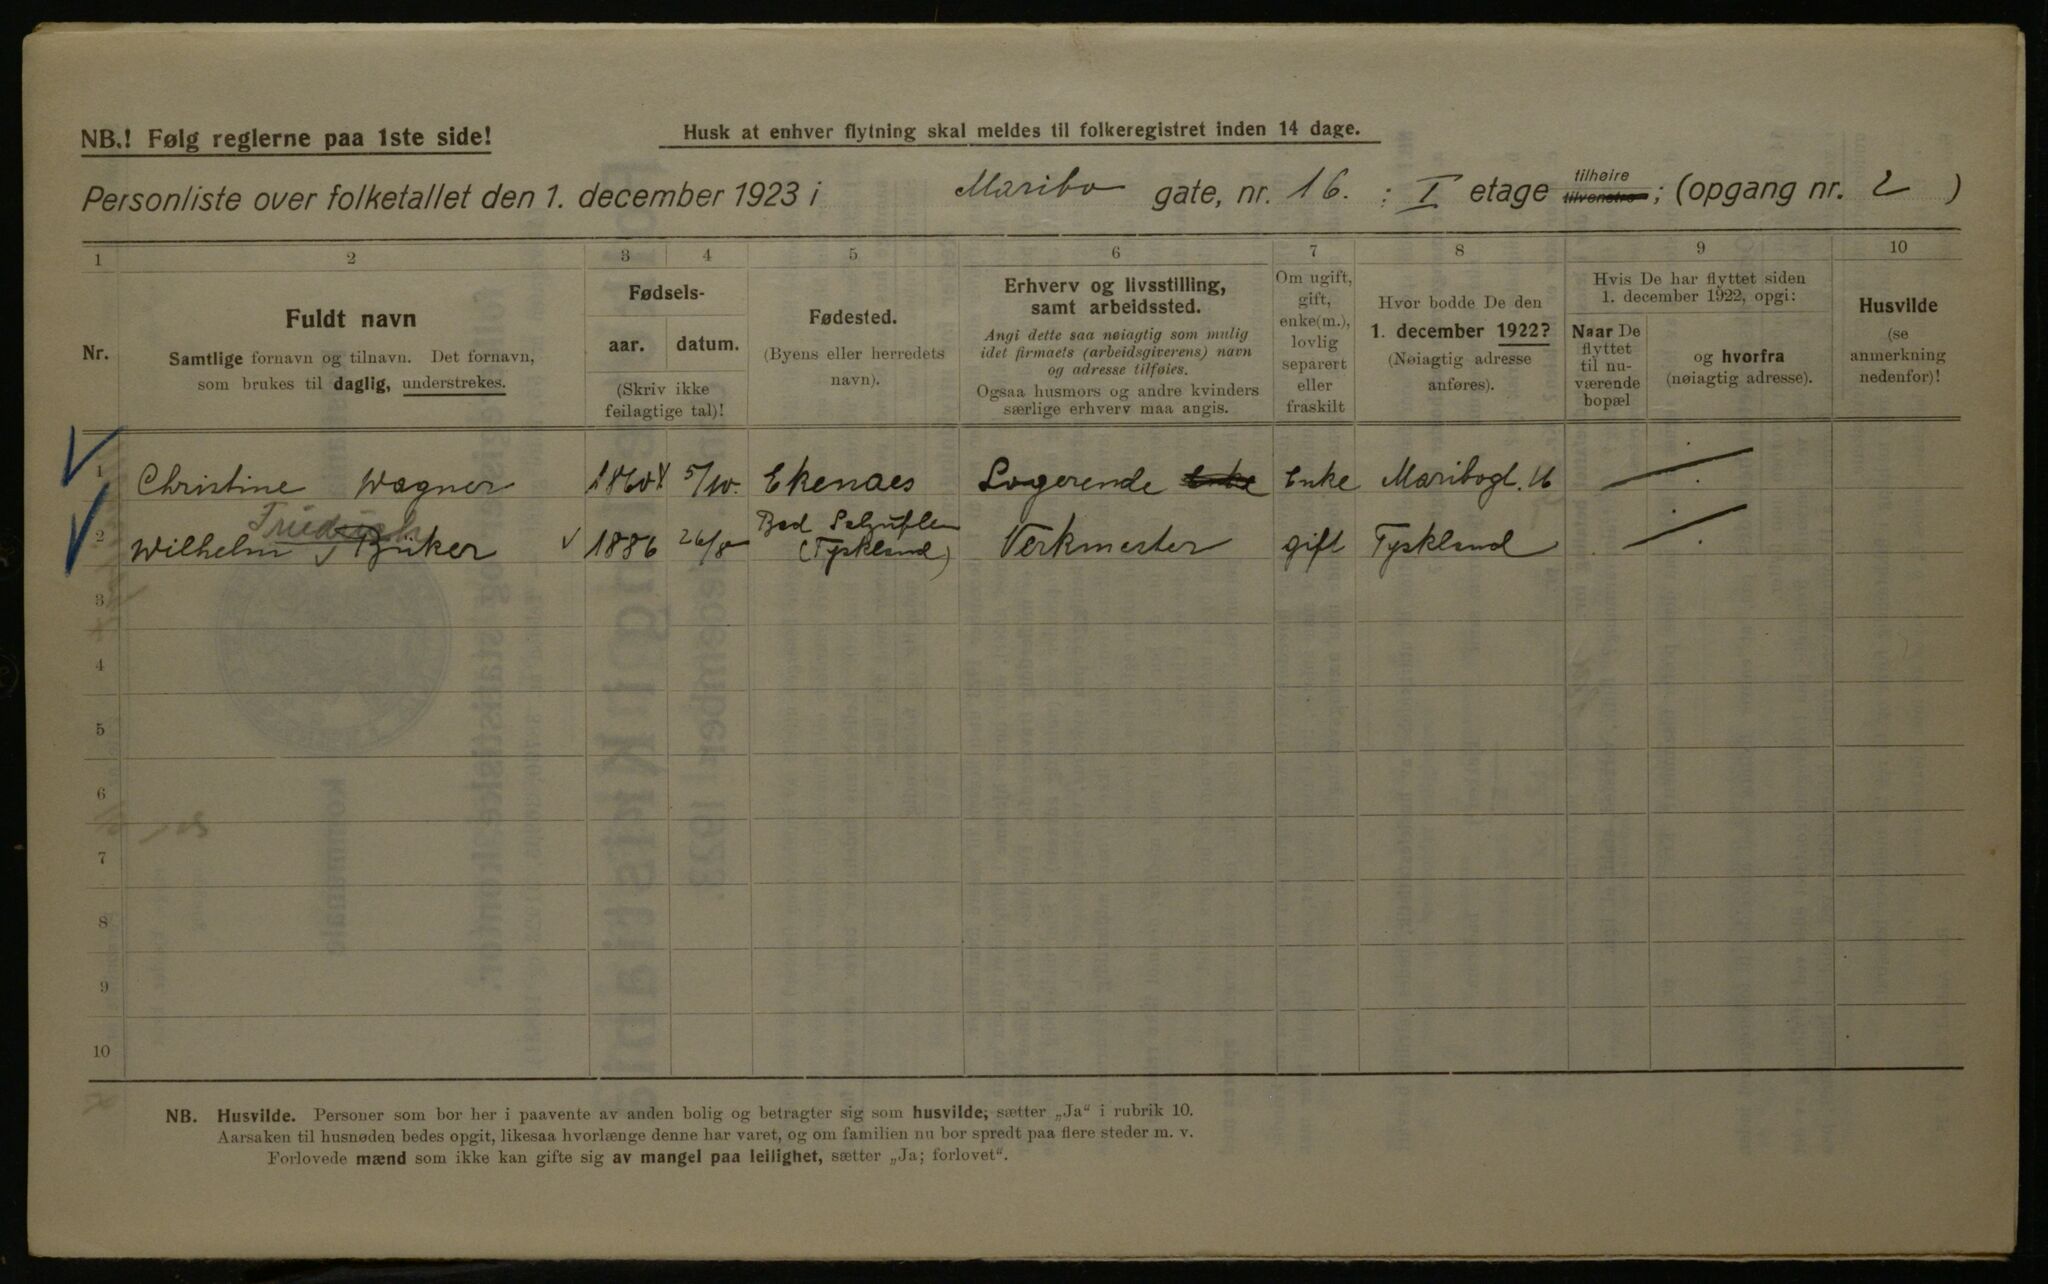 NB.! Følg reglerne paa 1ste side!
Husk at enhver flytning skal meldes til folkeregistret inden 14 dage.
Personliste over folketallet den 1. december 1923 i Maribo gate, nr. 16. : I etage tilhøire tilvenstre; (opgang nr. 2 )
1 2 3 4 5 6 7 8 9 10
Nr.
Fuldt navn
Samtlige fornavn og tilnavn. Det fornavn,
som brukes til daglig, understrekes.
Fødsels-
aar. datum.
(Skriv ikke
feilagtige tal)!
Fødested.
(Byens eller herredets
navn).
Erhverv og livsstilling,
samt arbeidssted.
Angi dette saa nøiagtig som mulig
idet firmaets (arbeidsgiverens) navn
og adresse tilføies.
Ogsaa husmors og andre kvinders
særlige erhverv maa angis.
Om ugift,
gift,
enke(m.),
lovlig
separert
eller
fraskilt
Hvor bodde De den
1. december 1922?
(Nøiagtig adresse
anføres).
Hvis De har flyttet siden
1. december 1922, opgi:
Naar De
flyttet
til nu-
værende
bopæl
og hvorfra
(nøiagtig adresse).
Husvilde
(se
anmerkning
nedenfor)!
1 Christine Wagner 1860 5/10. Ekenaes Logerende Enke Enke Maribogt. 16
Friedrich
2 Wilhelm Büker 1886 26/8 Bad Salzuflen (Tyskland) Verkmester gift Tyskland
3
4
5
6
7
8
9
10
NB. Husvilde. Personer som bor her i paavente av anden bolig og betragter sig som husvilde, sætter „Ja“ i rubrik 10.
Aarsaken til husnøden bedes opgit, likesaa hvorlænge denne har varet, og om familien nu bor spredt paa flere steder m. v.
Forlovede mænd som ikke kan gifte sig av mangel paa leilighet, sætter „Ja; forlovet“.